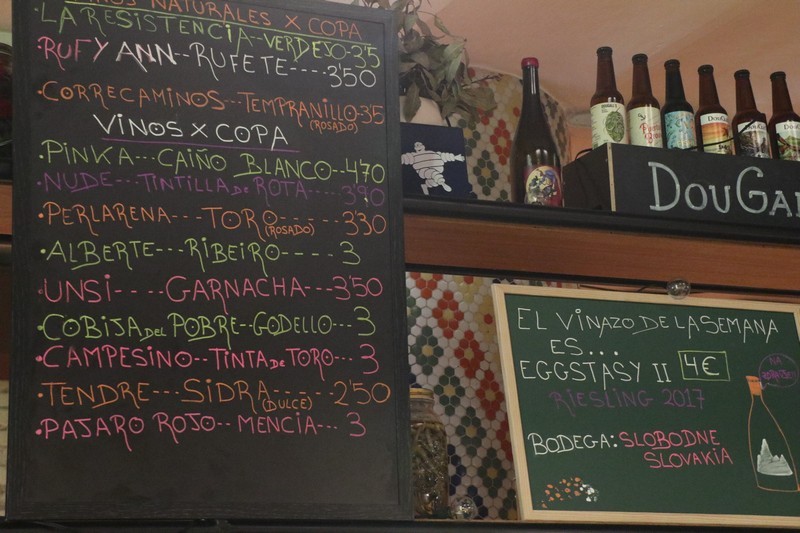 VINOS NATURALES X COPA
·LA RESISTENCIA--VERDEJO-3'5
·RUFY ANN--RUFETE----
350
·CORRECAMINOS--TEMPRANILLO-35
(ROSADO)
VINOS X COPA
·PINKA---CAIÑO BLANCO--470
·NUDE---TINTILLA DE ROTA---390
·PERLARENA---TORO-----330
(ROSADO)
·ALBERTE---RIBEIRO----3
·UNSI----GARNACHA---3'50
·COBIJA DEL POBRE--GODELLO---3
·CAMPESINO--TINTA DE TORO---3
·TENDRE---SIDRA-----2'50
(DULCE)
·PAJARO ROJO--MENCIA---3
DOUGA
EL VINAZO DE LA SEMANA
ES...
EGGSTASY II 4€
RIESLING 2017
BODEGA: SLOBODNE
SLOVAKIA